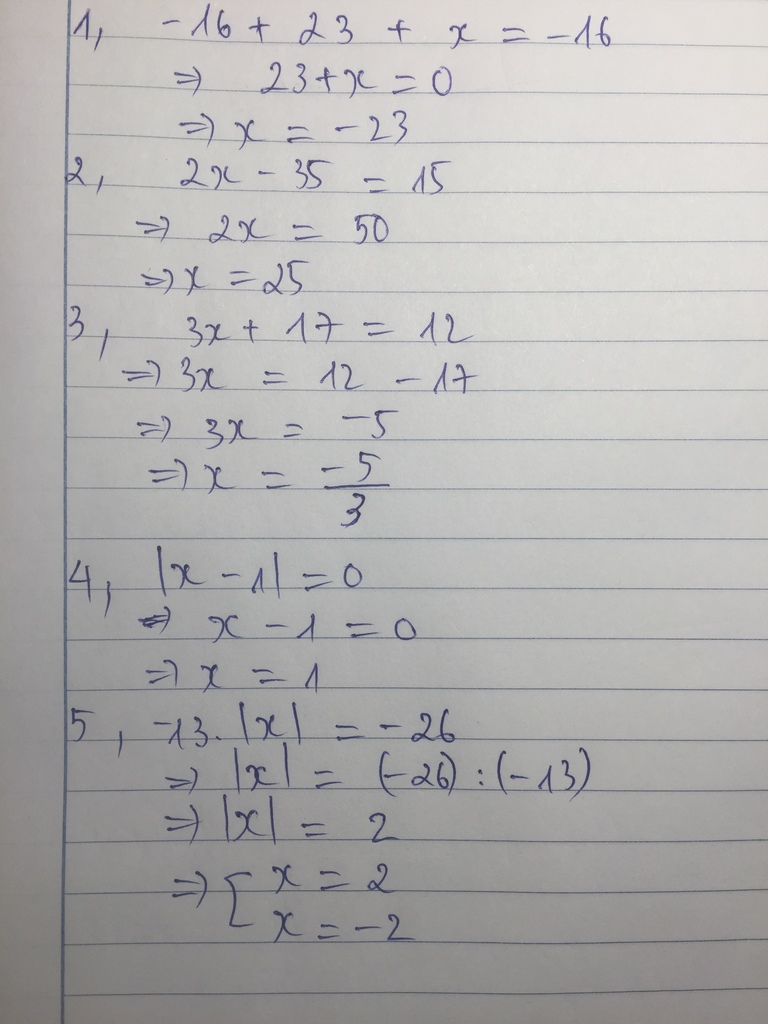 1, -16 + 23 + x = -16
=> 23+x = 0
=> x = -23
2, 2x - 35 = 15
=> 2x = 50
=> x = 25
3, 3x + 17 = 12
=> 3x = 12 - 17
=> 3x = -5
=> x = -5/3
4, |x - 1| = 0
=> x - 1 = 0
=> x = 1
5, -13. |x| = -26
=> |x| = (-26) : (-13)
=> |x| = 2
=> [ x = 2
x = -2